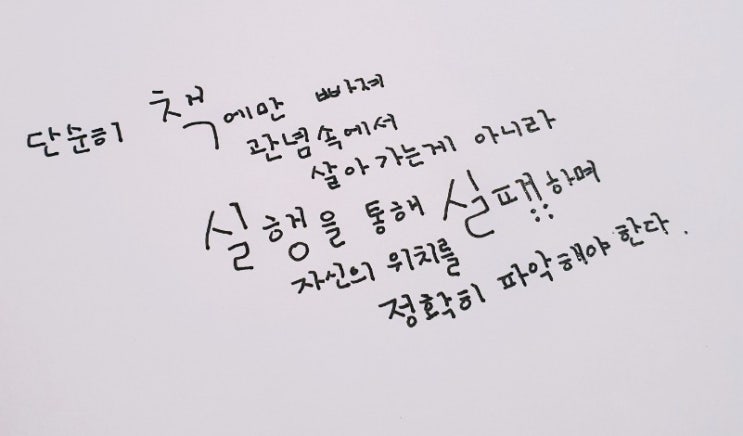 단순히 책에만 빠져
관념속에서
살아가는게 아니라
실행을 통해 실패하며
자신의 위치를
정확히 파악해야 한다.